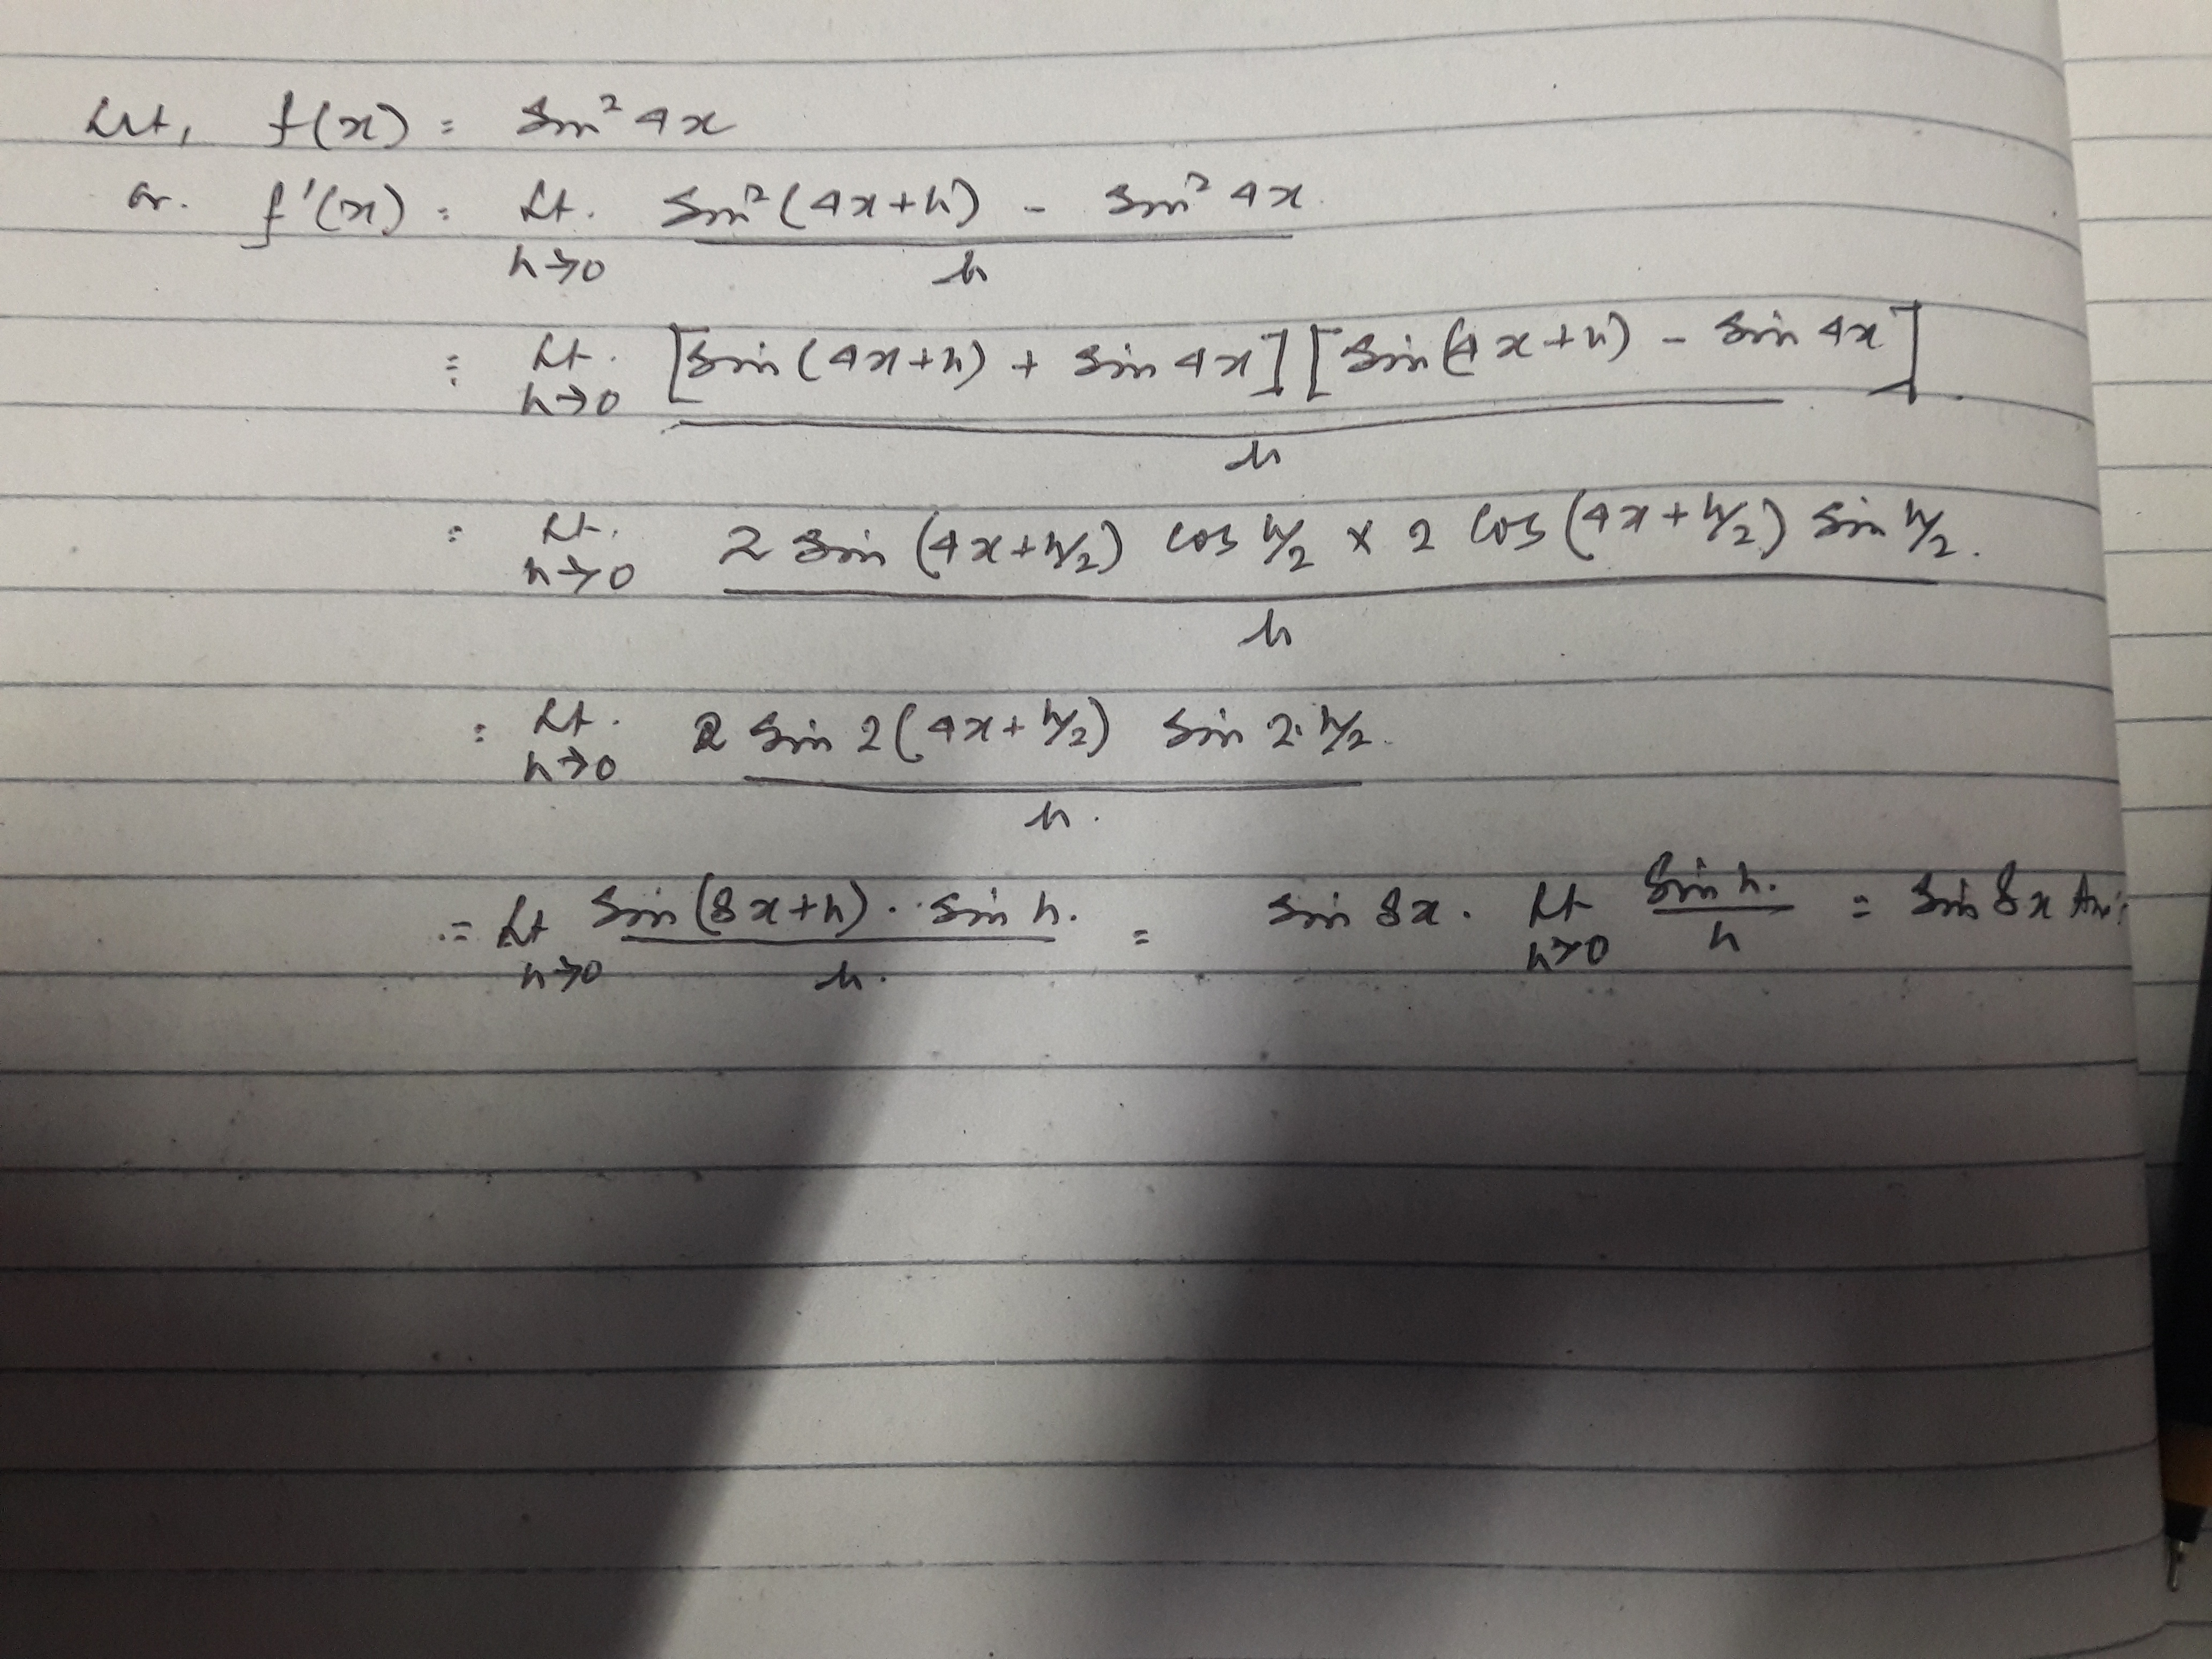 Let, f(x) = sin² 4x
or. f'(x) = Lt. h→0 sin² (4x+h) - sin² 4x / h
= Lt. h→0 [sin (4x+h) + sin 4x] [sin (4x+h) - sin 4x] / h
= Lt. h→0 2 sin (4x+h/2) cos h/2 × 2 cos (4x+h/2) sin h/2. / h
= Lt. h→0 sin 2(4x+h/2) sin 2·h/2. / h.
= Lt h→0 sin (8x+h) · sin h. / h. = sin 8x. Lt h→0 sin h. / h = sin 8x Ans